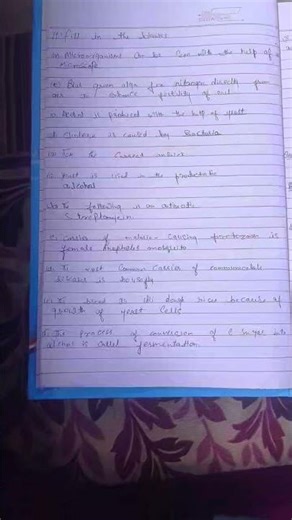 1) Fill in the blanks
a) Microorganisms can be seen with the help of a
Microscope
b) Blue green algae fix nitrogen directly from
air to enhance fertility of soil
c) Alcohol is produced with the help of yeast
d) Cholera is caused by Bacteria
2) Tick the correct
a) Yeast is used in the production of
alcohol
b) The following is an antibiotic
Streptomycin
c) Carrier of malaria causing protozoan is
female anopheles mosquito
d) The most common carrier of communicable
diseases is housefly
e) The bread or idli dough rises because of
growth of yeast cells
f) The process of conversion of sugar into
alcohol is called fermentation